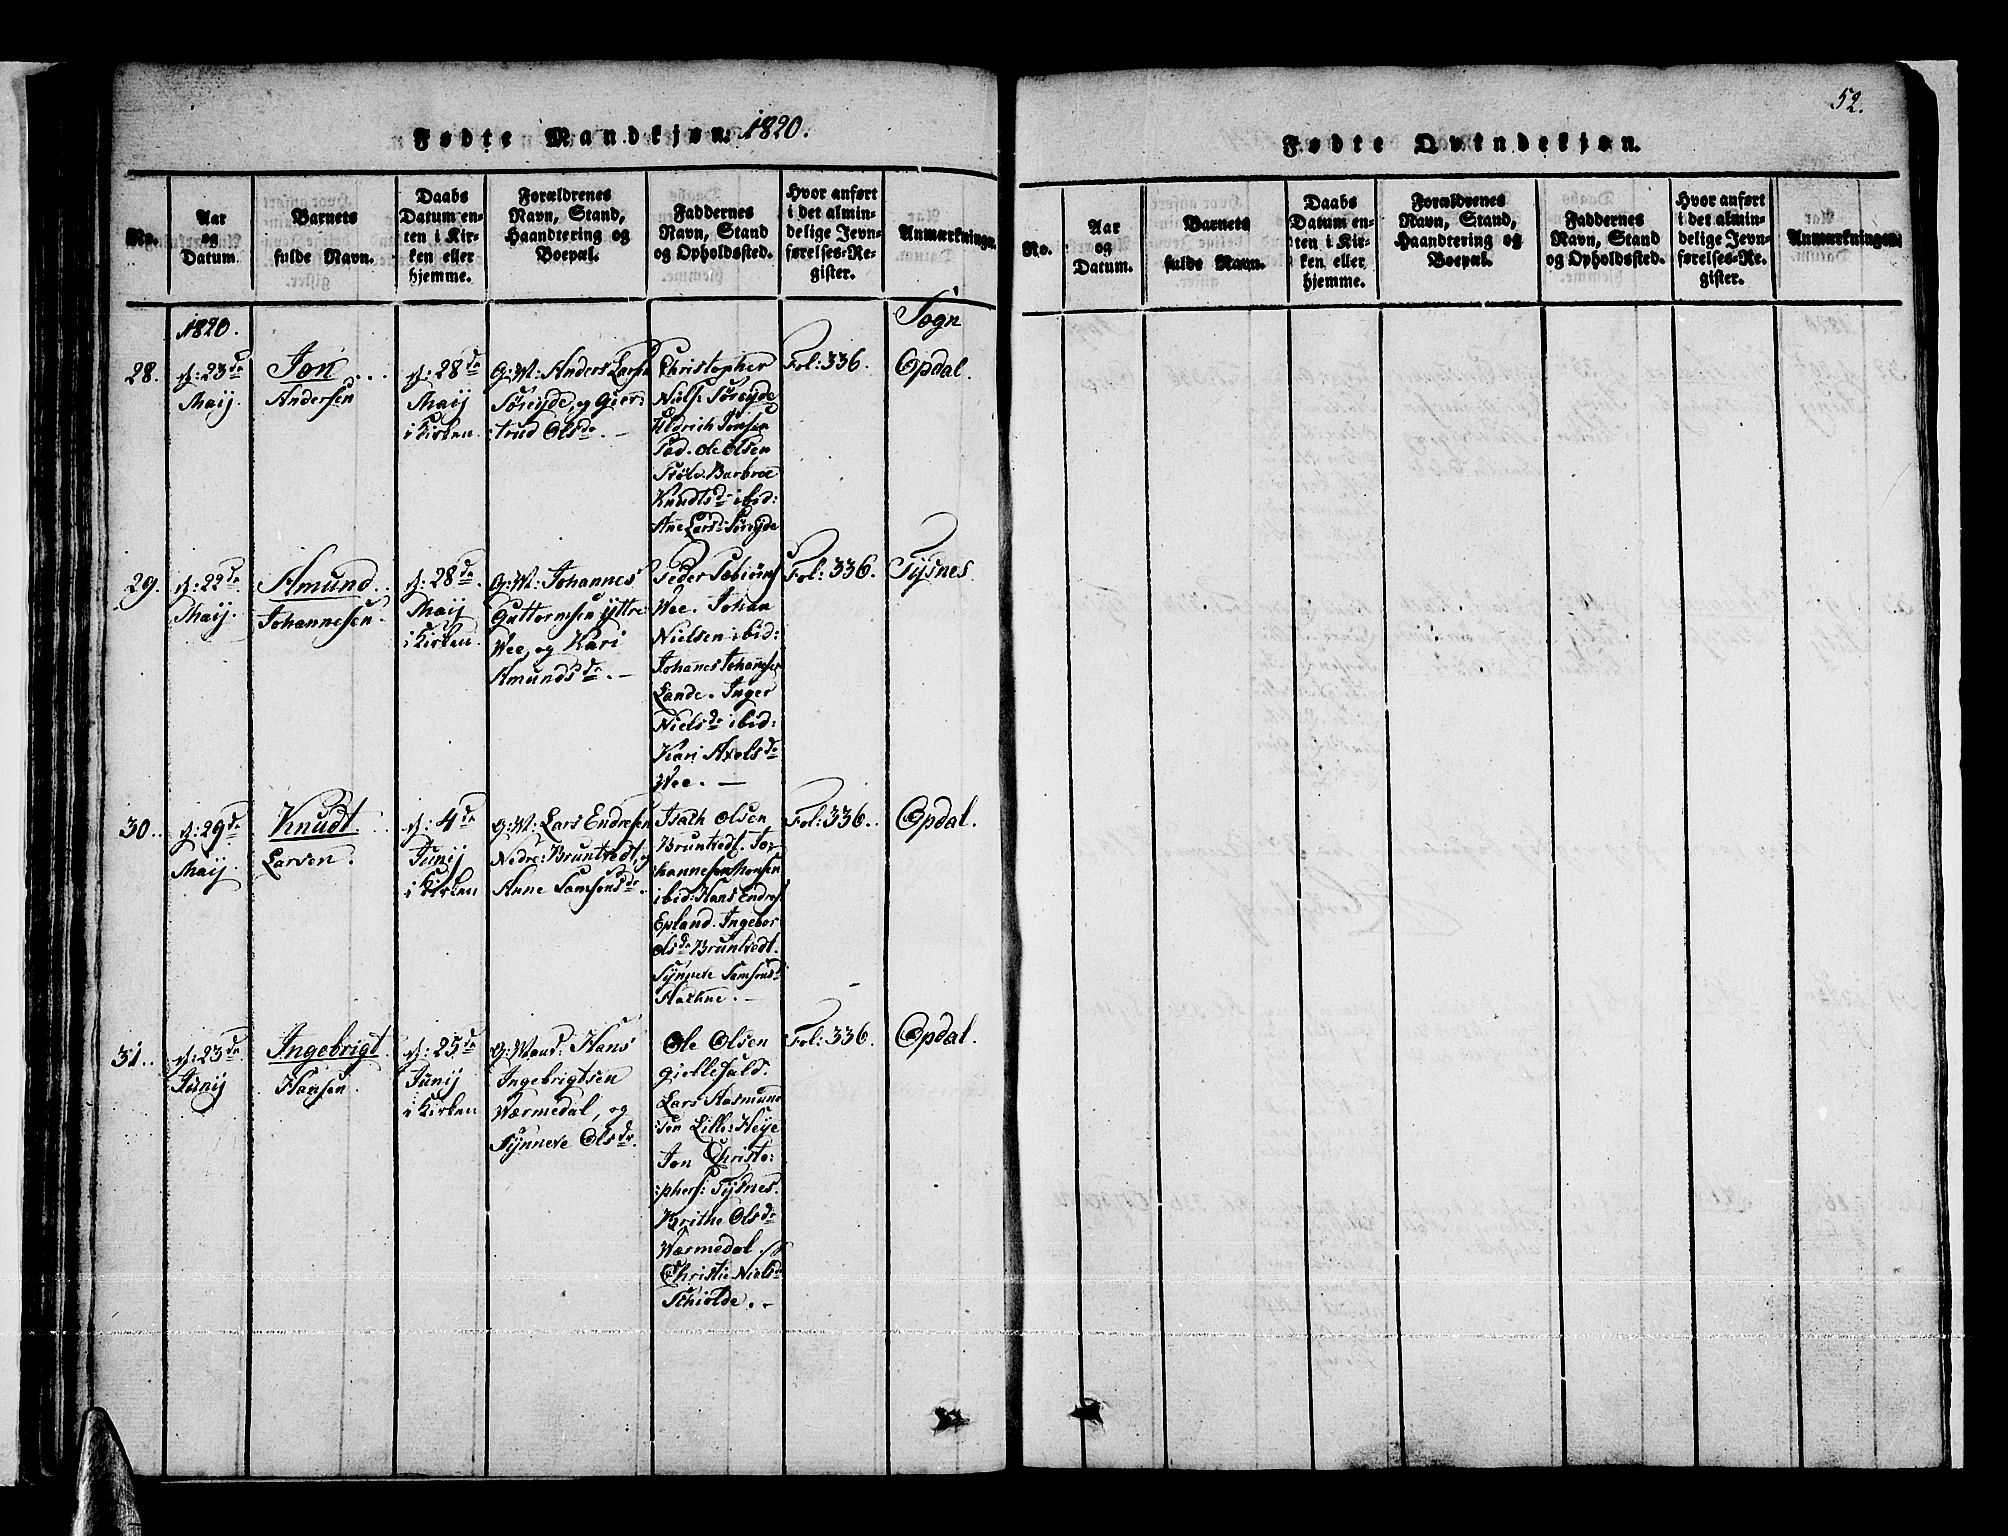 Fødte Mandkjøn. 1820.
No.
Aar
og
Datum.
Barnets
fulde Navn.
Daabs
Datum en-
ten i Kir-
ken eller
hjemme.
Forældrenes
Navn, Stand,
Haandtering og
Boepæl.
Faddernes
Navn, Stand
og Opholdssted.
Hvor anført
i det almin-
delige Jevn-
førelses-Re-
gister.
Anmærkninger.
1820.
Sogn
28.
d: 23de
Maij.
Jon
Andersen
d: 28de
Maij
i Kirken.
G: M: Anders Lars:
Søreyde, og Gier:
:trud Olsdr. –
Christopher
Niels: Søreyde
Eldrich Jonsen
Ole Olsen
Barbroe
Knudtsdr ibid:
Ane Larsd: Søreyde
Fol: 336.
Opdal.
29.
d: 22de
Maij.
Amund
Johannesen.
d: 28de
Maij
i Kirken.
G: M: Johannes
Guttormsen Yttre:
Wee, og Kari
Amundsdr. –
Peder
Wee. Johan
Nielsen ibid:
Johanes Johannsen
Lande. Inger
Nielsdr ibid:
Kari Axelsdr
Wee. –
Fol: 336.
Tysnes
30.
d: 29de
Maij.
Knudt.
Larsen.
d: 4de
Junij
i Kirken
G: M: Lars Endresen
Nedre: Bruntvedt, og
Anne Samsonsdr.
Isach Olsen
Bruntvedt. Jo:
:hannes Monsen
ibid: Hans Endres:
Epland. Ingebor
Olsdr Bruntvedt.
Synneve Samsonsd:
Fol: 336.
Opdal.
31.
d: 23de
Junij
Ingebrigt
Hansen.
d: 25de
Junij
i Kirken
G: Mand: Hans
Ingebrigtsen
Wærmedal, og
Synneve Olsdr.
Ole Olsen
Giellefald.
Lars Aasmund
:sen Lille: Heye
Jon Christo:
:phers: Tysnes.
Brithe Olsdr
Wærmedal.
Christie Nielsdr
Schiolde. –
Fol: 336.
Opdal.
52.
Fødte Qvindekjøn.
No.
Aar
og
Datum.
Barnets
fulde Navn.
Daabs
Datum en-
ten i Kir-
ken eller
hjemme.
Forældrenes
Navn, Stand,
Haandtering og
Boepæl.
Faddernes
Navn, Stand
og Opholdssted.
Hvor anført
i det almin-
delige Jevn-
førelses-Re-
gister.
Anmærkninger.